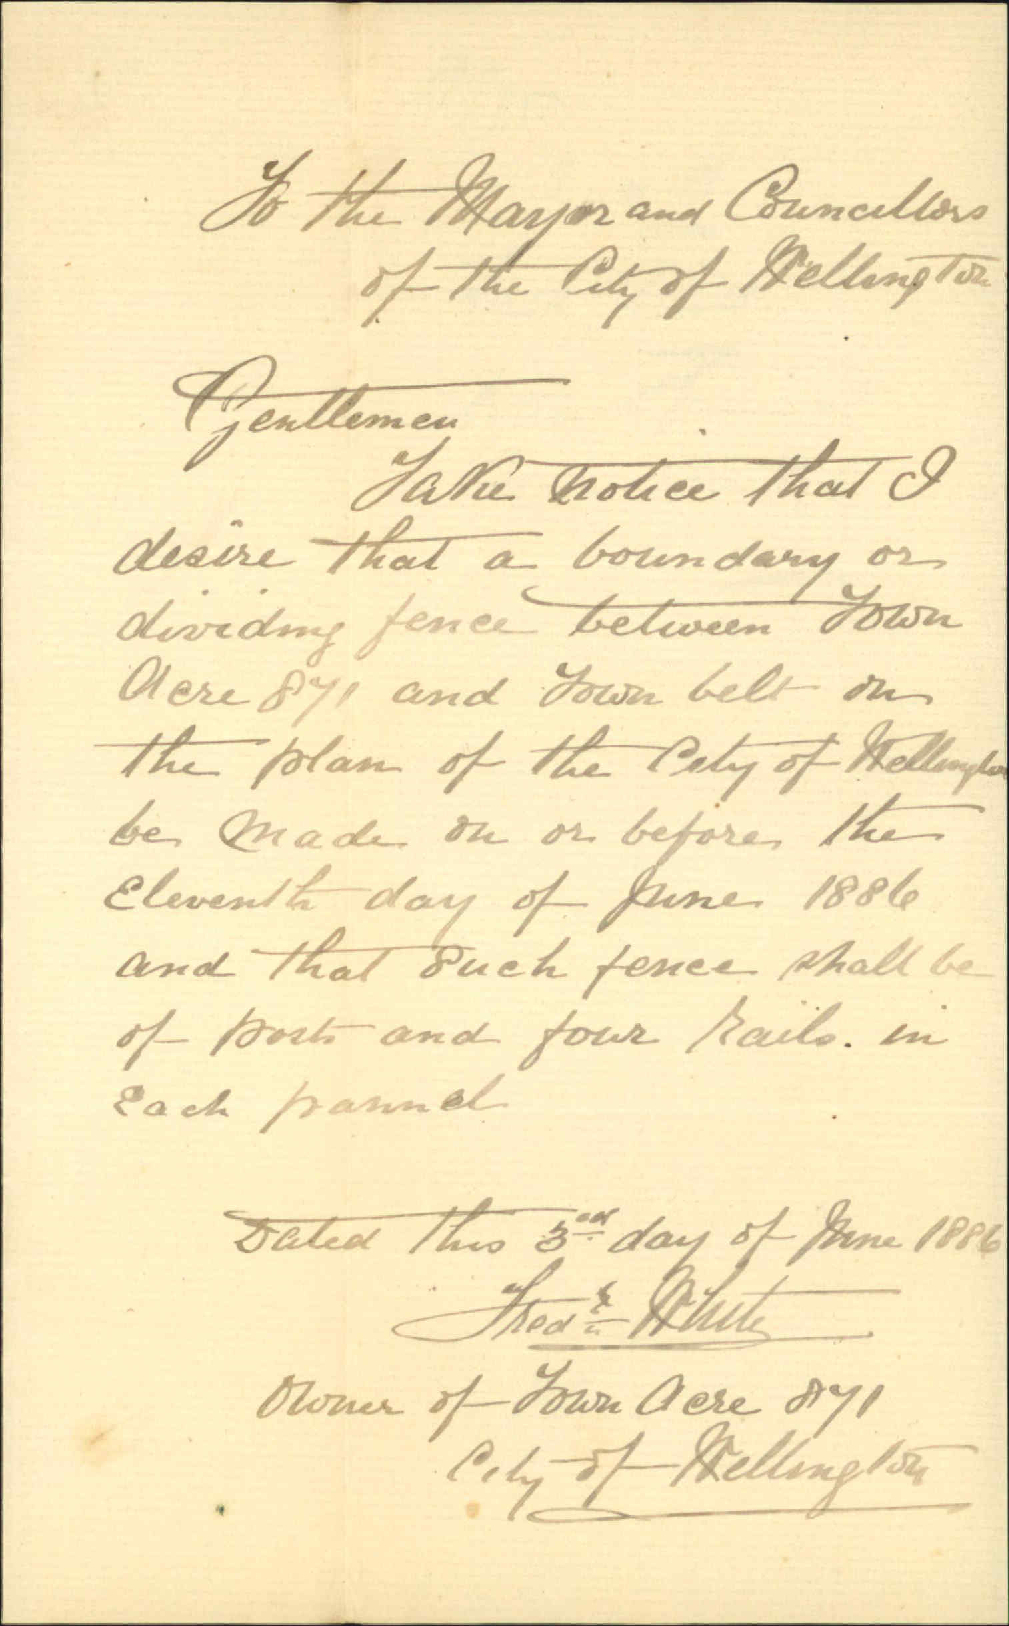 To the Mayor and Councillors
of the City of Wellington
Gentlemen
Take notice that I
desire that a boundary or
dividing fence between Town
Acre 871 and Town belt on
the plan of the City of Wellington
be made on or before the
Eleventh day of June 1886
and that such fence shall be
of posts and four rails. in
Each pannel
Dated this 3rd day of June 1886
Fredk White
Owner of Town Acre 871
City of Wellington